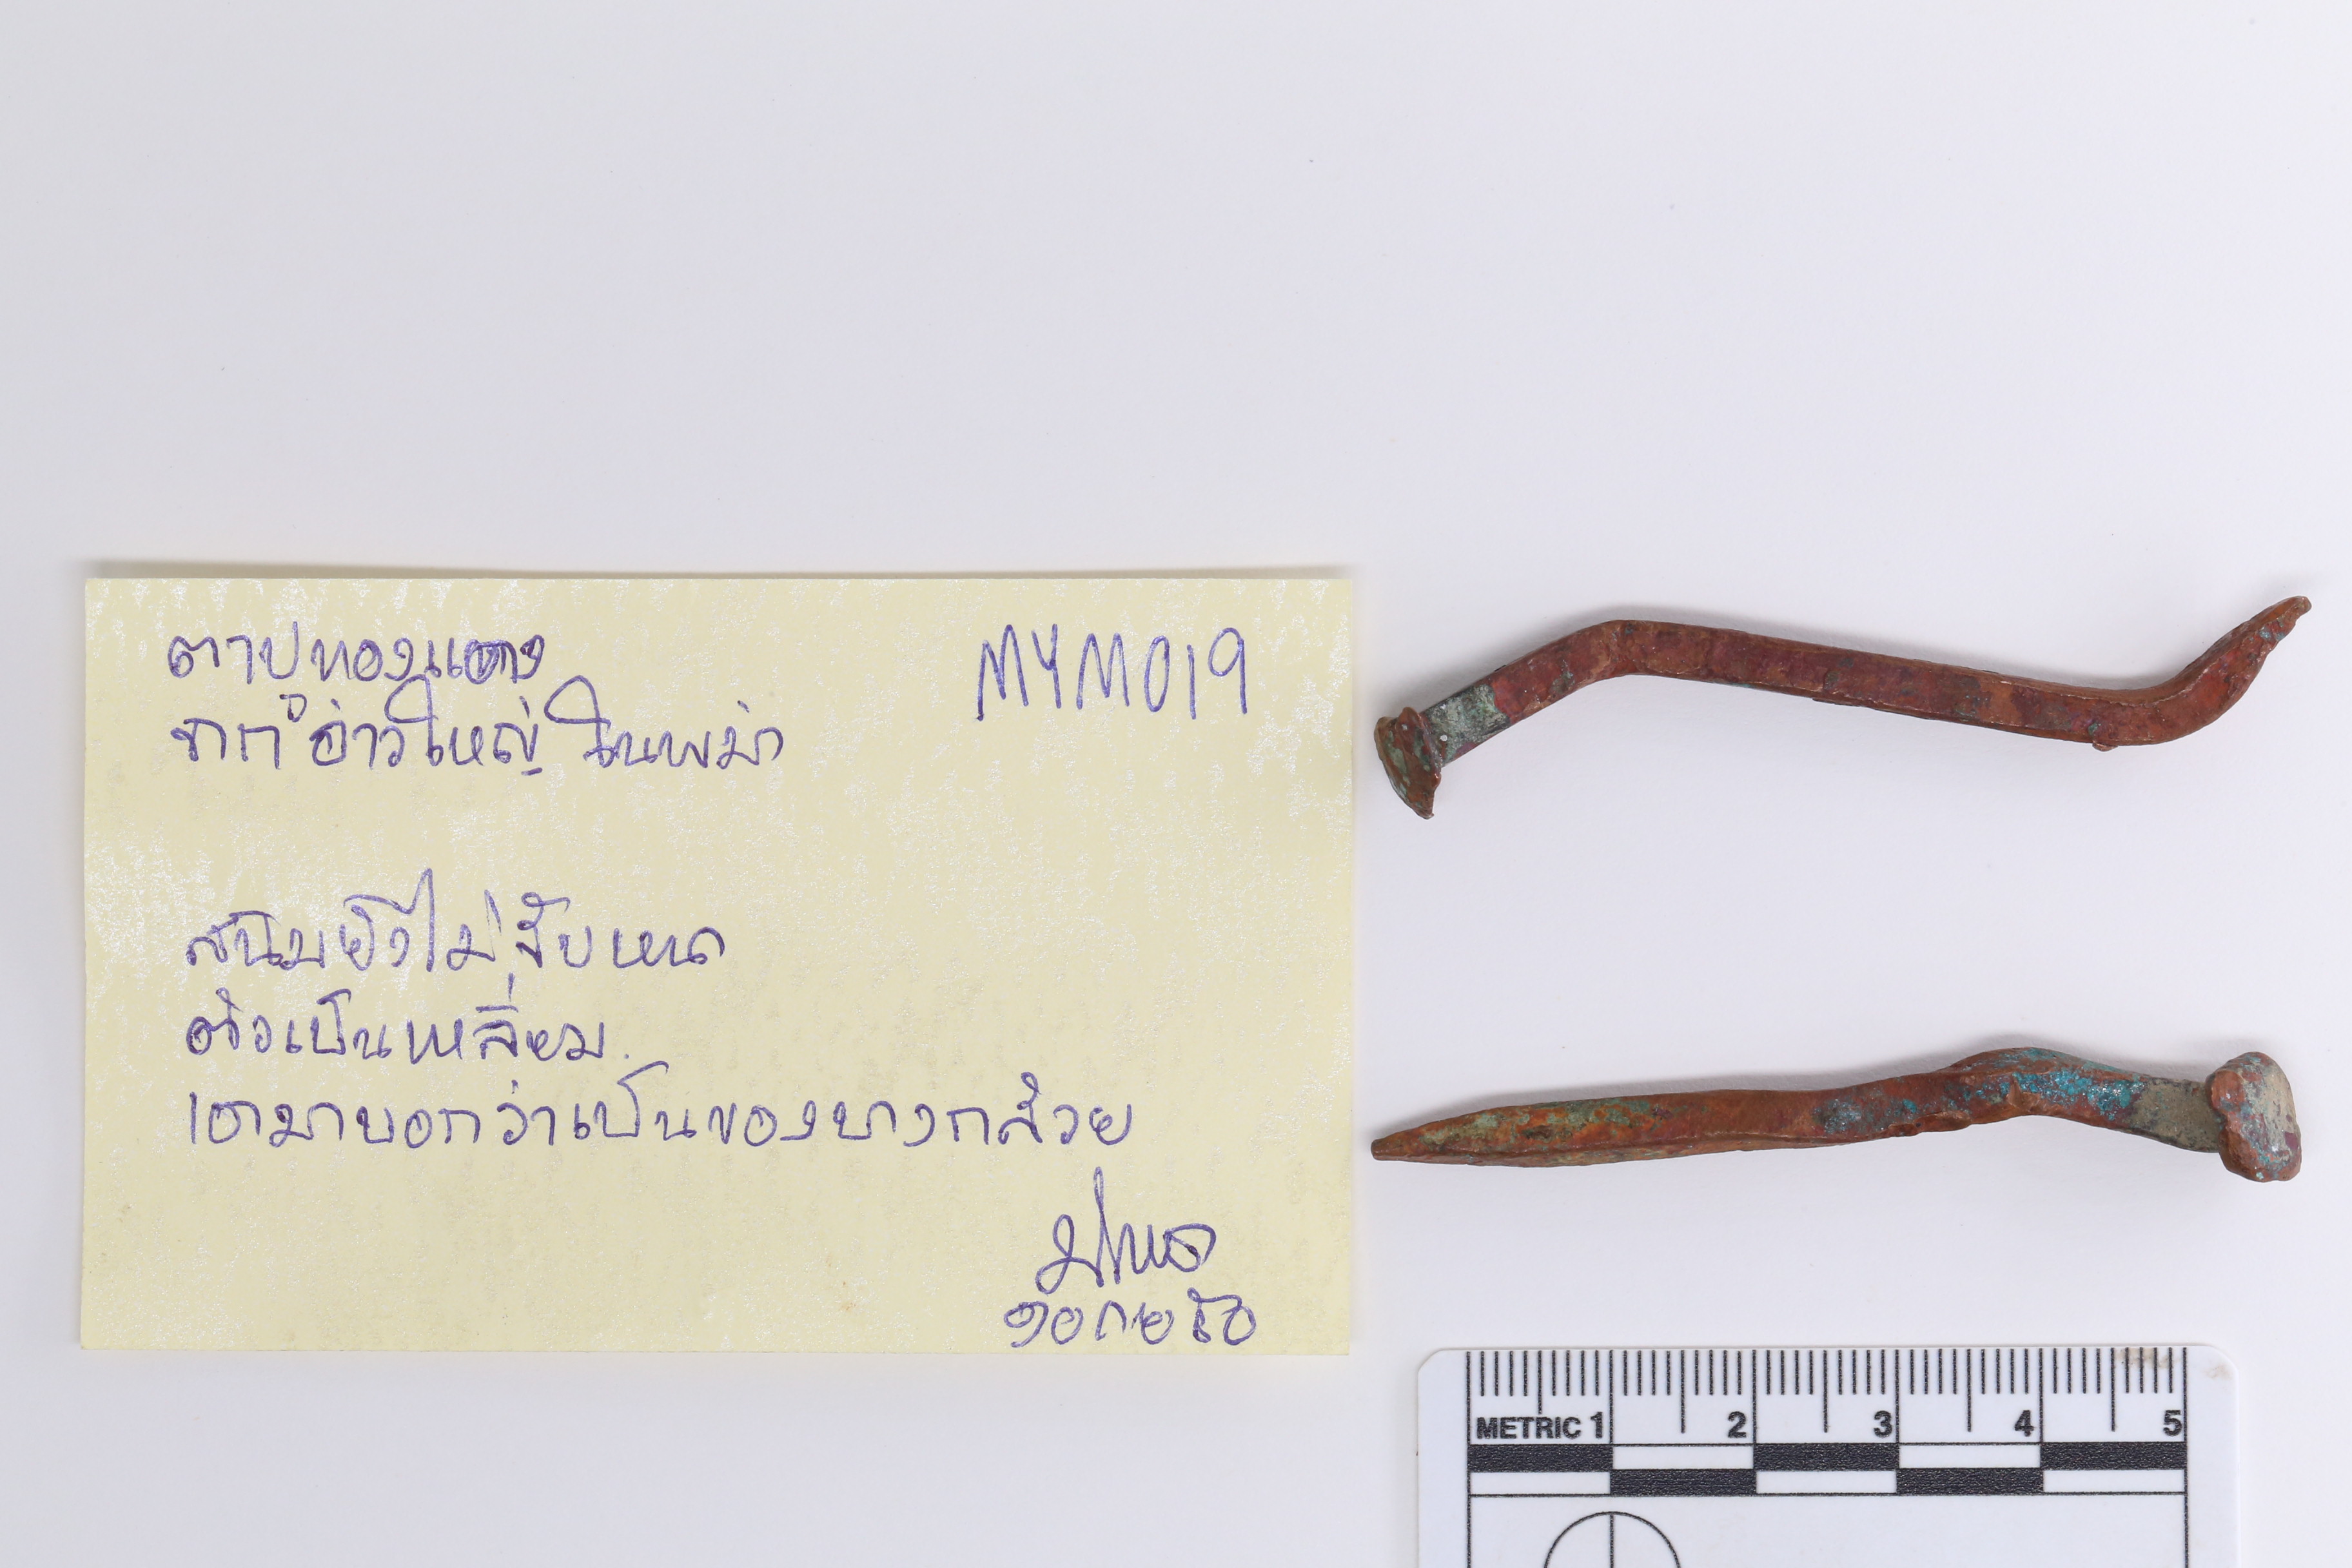 ตาปูทองแดง
MYM019
จาก อ่าวใหญ่ ในพม่า
สนิมยังไม่จับหนา
ตัวเป็นเหลี่ยม
เอามาบอกว่าเป็นของบางกล้วย
METRIC 1 2 3 4 5